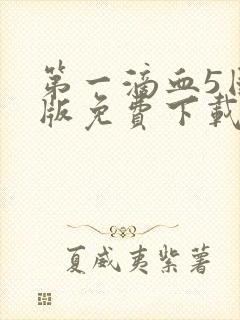 第一滴血5
版免费下载
夏威夷紫薯